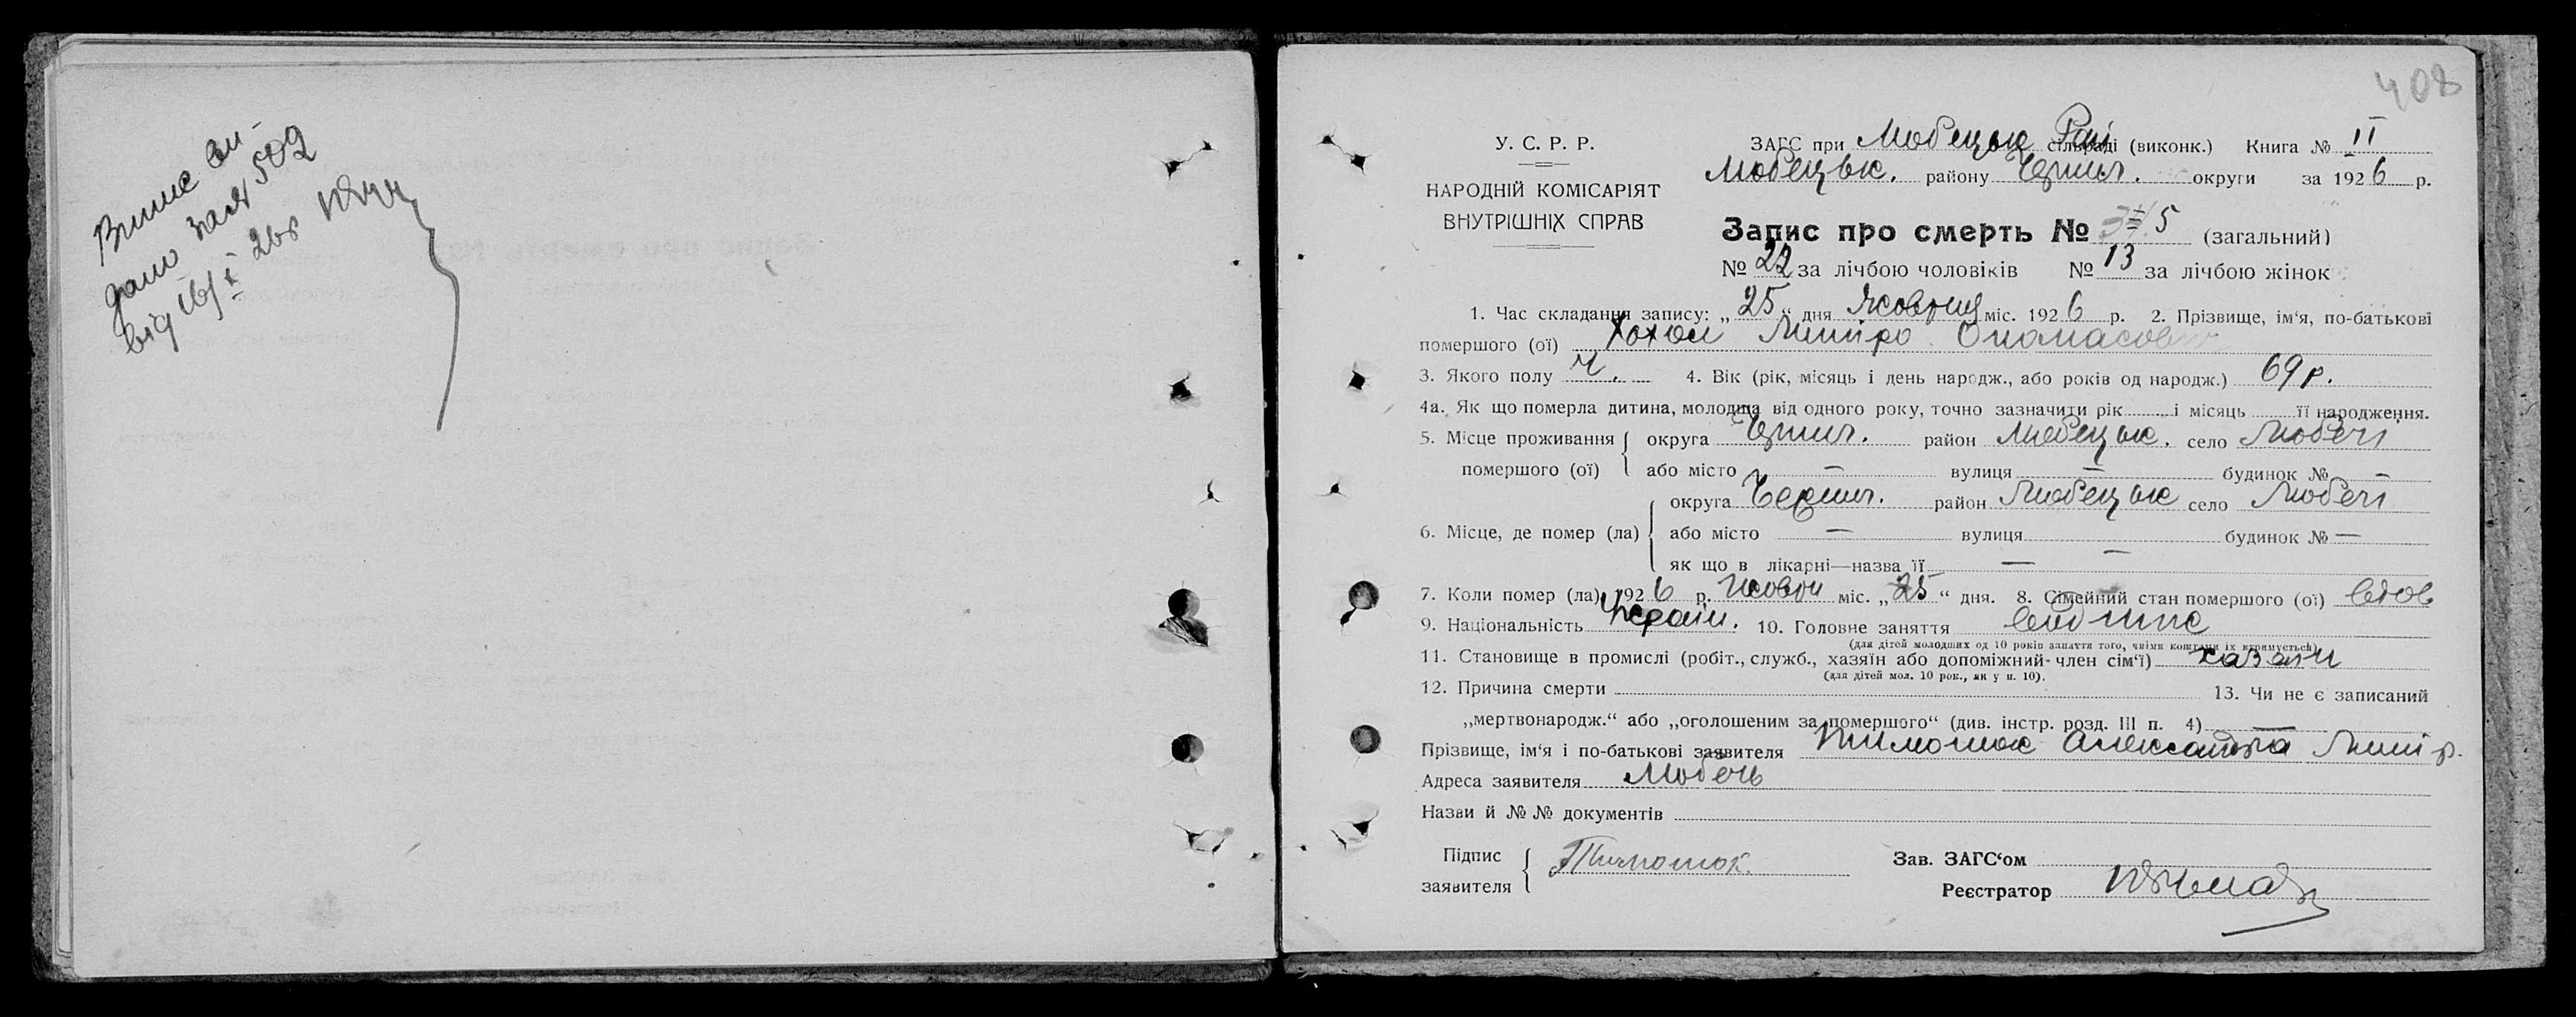 Випис ви-
дано за № 502
від 16/X 26 р
408
У. С. Р. Р.
НАРОДНІЙ КОМІСАРІЯТ
ВНУТРІШНІХ СПРАВ
ЗАГС при Любецьк Рай сільраді (виконк.) Книга № II
Любецьк. району Черниг. округи за 1926 р.
Запис про смерть № 35 (загальний)
№ 22 за лічбою чоловіків № 13 за лічбою жінок
1. Час складання запису: „25“ дня Жовтня міс. 1926 р. 2. Прізвище, ім'я, по-батькові
помершого (ої) Хохол Дмитро Опанасович
3. Якого полу Ч. 4. Вік (рік, місяць і день народж., або років од народж.) 69 р.
4а. Як що померла дитина, молодша від одного року, точно зазначити рік і місяць її народження.
5. Місце проживання помершого (ої) округа Черниг. район Любецьк. село Любечі
або місто — вулиця — будинок № —
6. Місце, де помер (ла) округа Черниг. район Любецьк село Любечі
або місто — вулиця — будинок № —
як що в лікарні—назва її —
7. Коли помер (ла) 1926 р. Жовтн міс. „25“ дня. 8. Сімейний стан помершого (ої) вдов
9. Національність Україн. 10. Головне заняття
(для дітей молодших од 10 років заняття того, чиїми коштами їх втримується)
11. Становище в промислі (робіт., служб., хазяїн або допоміжний-член сім'ї) хазяїн
(для дітей мол. 10 рок., як у п. 10).
12. Причина смерти 13. Чи не є записаний
„мертвонародж.“ або „оголошеним за помершого“ (див. інстр. розд. III п. 4) —
Прізвище, ім'я і по-батькові заявителя Тимошок Александра Дмитр.
Адреса заявителя Любечь
Назви й № № документів
Підпис заявителя Тимошок.
Зав. ЗАГС'ом
Реєстратор